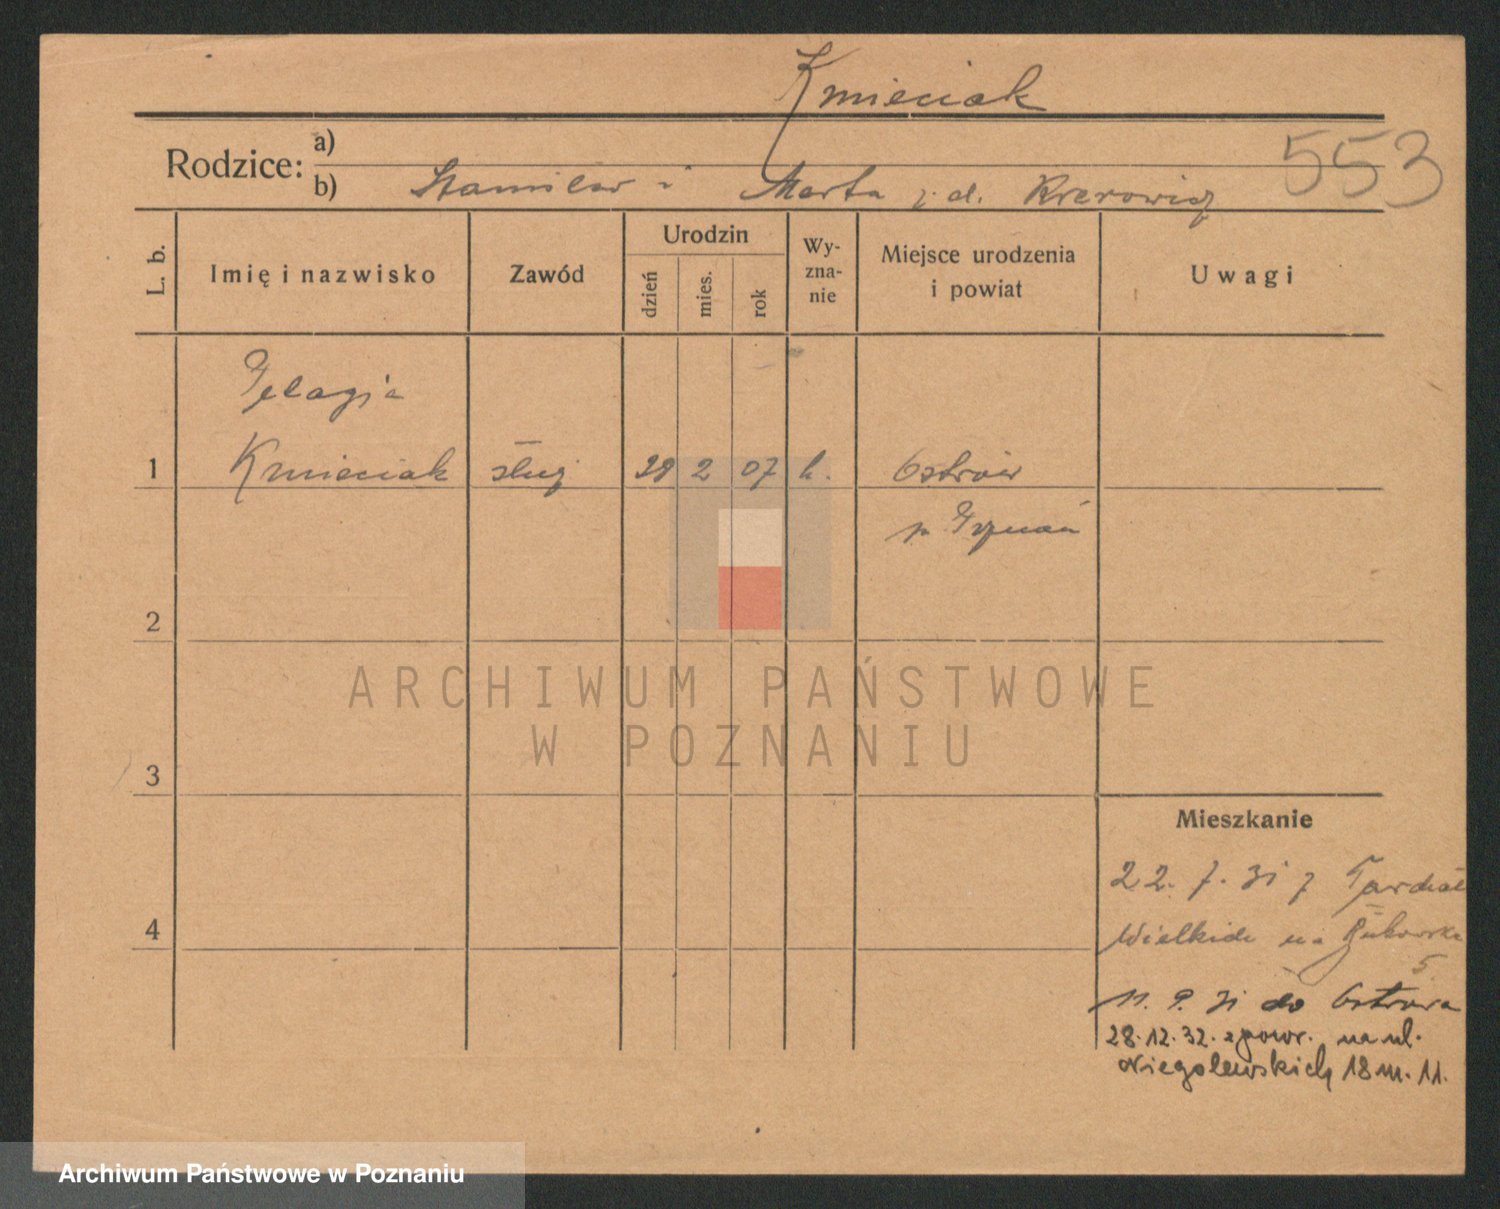 Kmieciak
553
Rodzice: a)
b) Stanisław i Marta z d.
L. b.
Imię i nazwisko
Zawód
Urodzin
dzień
mies.
rok
Wy-
zna-
nie
Miejsce urodzenia
i powiat
Uwagi
Pelagja
1 Kmieciak służ 28 2 07 k. Ostrów
p. Poznań
2
3
4
Mieszkanie
22. 7. 31 z
na Bukowska
5
11. 9. 31 do Ostrowa
28.12.32. z powr. na ul.
Niegolewskich 18 m. 11.
ARCHIWUM PAŃSTWOWE
W POZNANIU
Archiwum Państwowe w Poznaniu